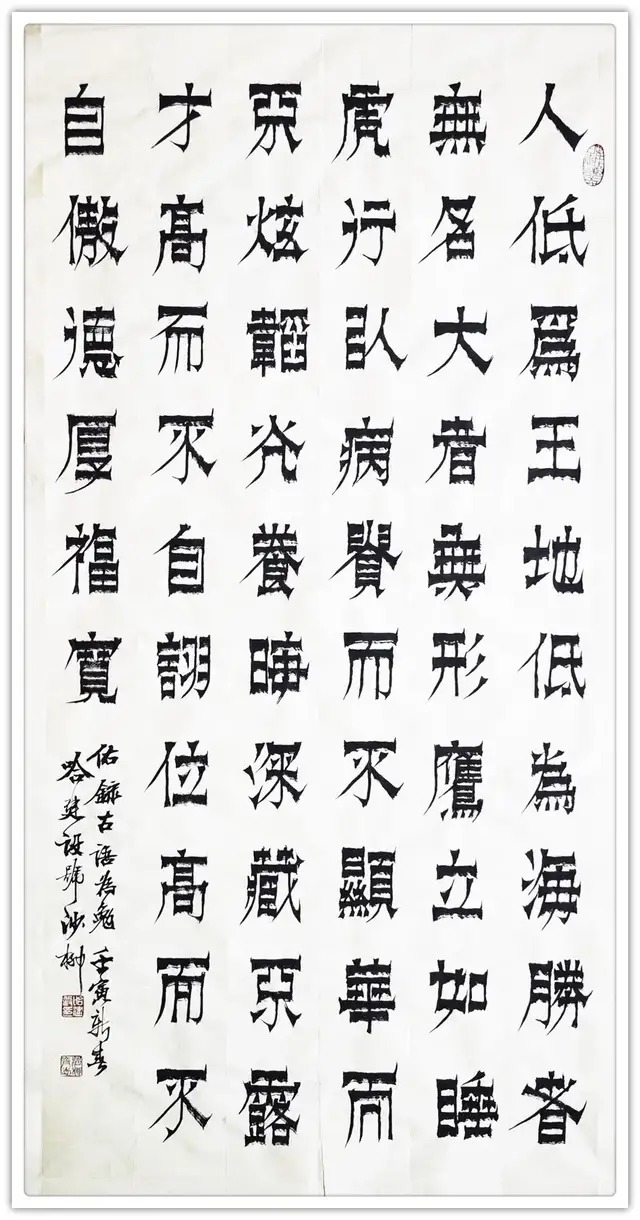 人低爲王地低為海勝者
無名大者無形鷹立如睡
虎行臥病貴而不顯華而
不炫韜光養晦深藏不露
才高而不自詡位高而不
自傲德厚福寬
佑錄古語為勉 壬寅新春
哈建設號沙柳